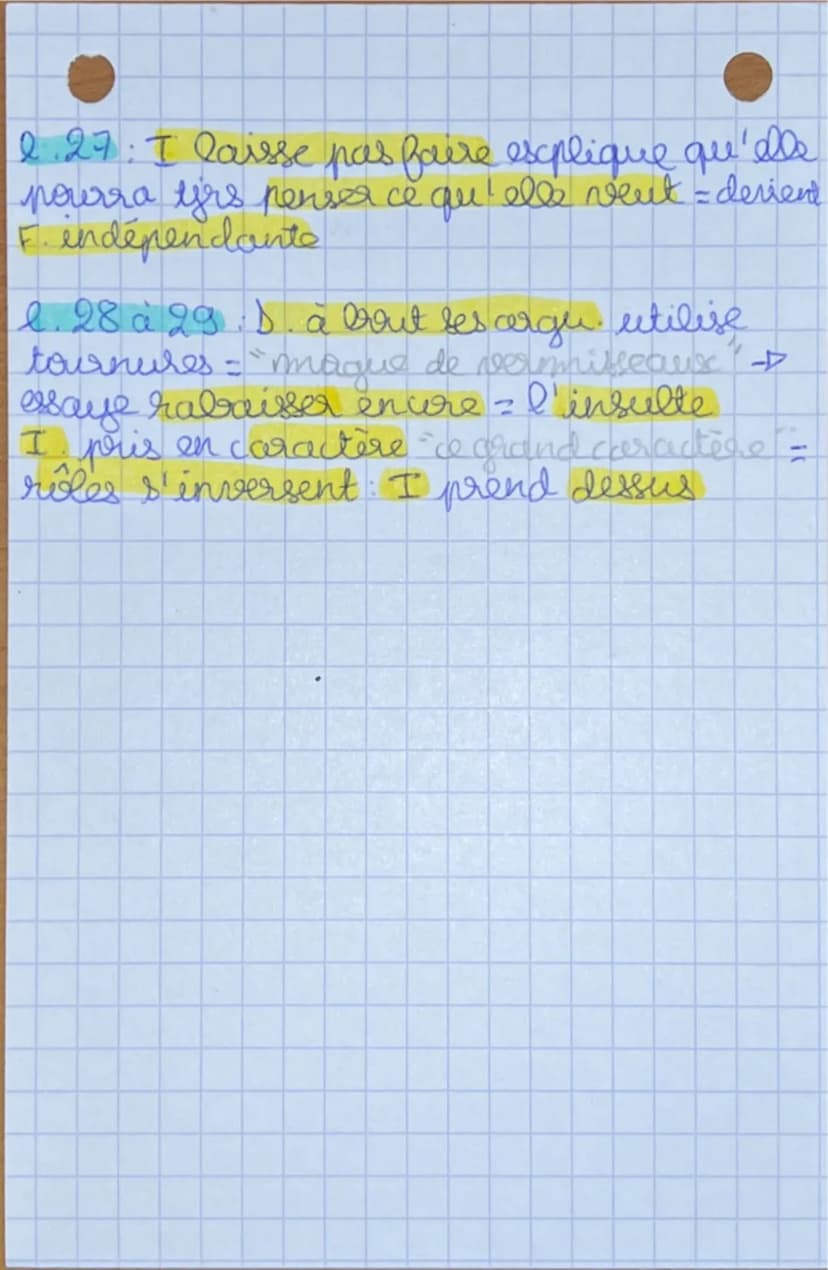 l.27 : I laisse pas faire explique qu'elle
pourra tjrs penser ce qu'elle veut = devient
F. indépendante
l.28 à 29 : D. à bout ses argu. utilise
tournures = "maque de vermisseaux" →
essaye rabaisser encore = l'insulte
I. pris en caractère "ce grand caractère" =
rôles s'inversent : I prend dessus